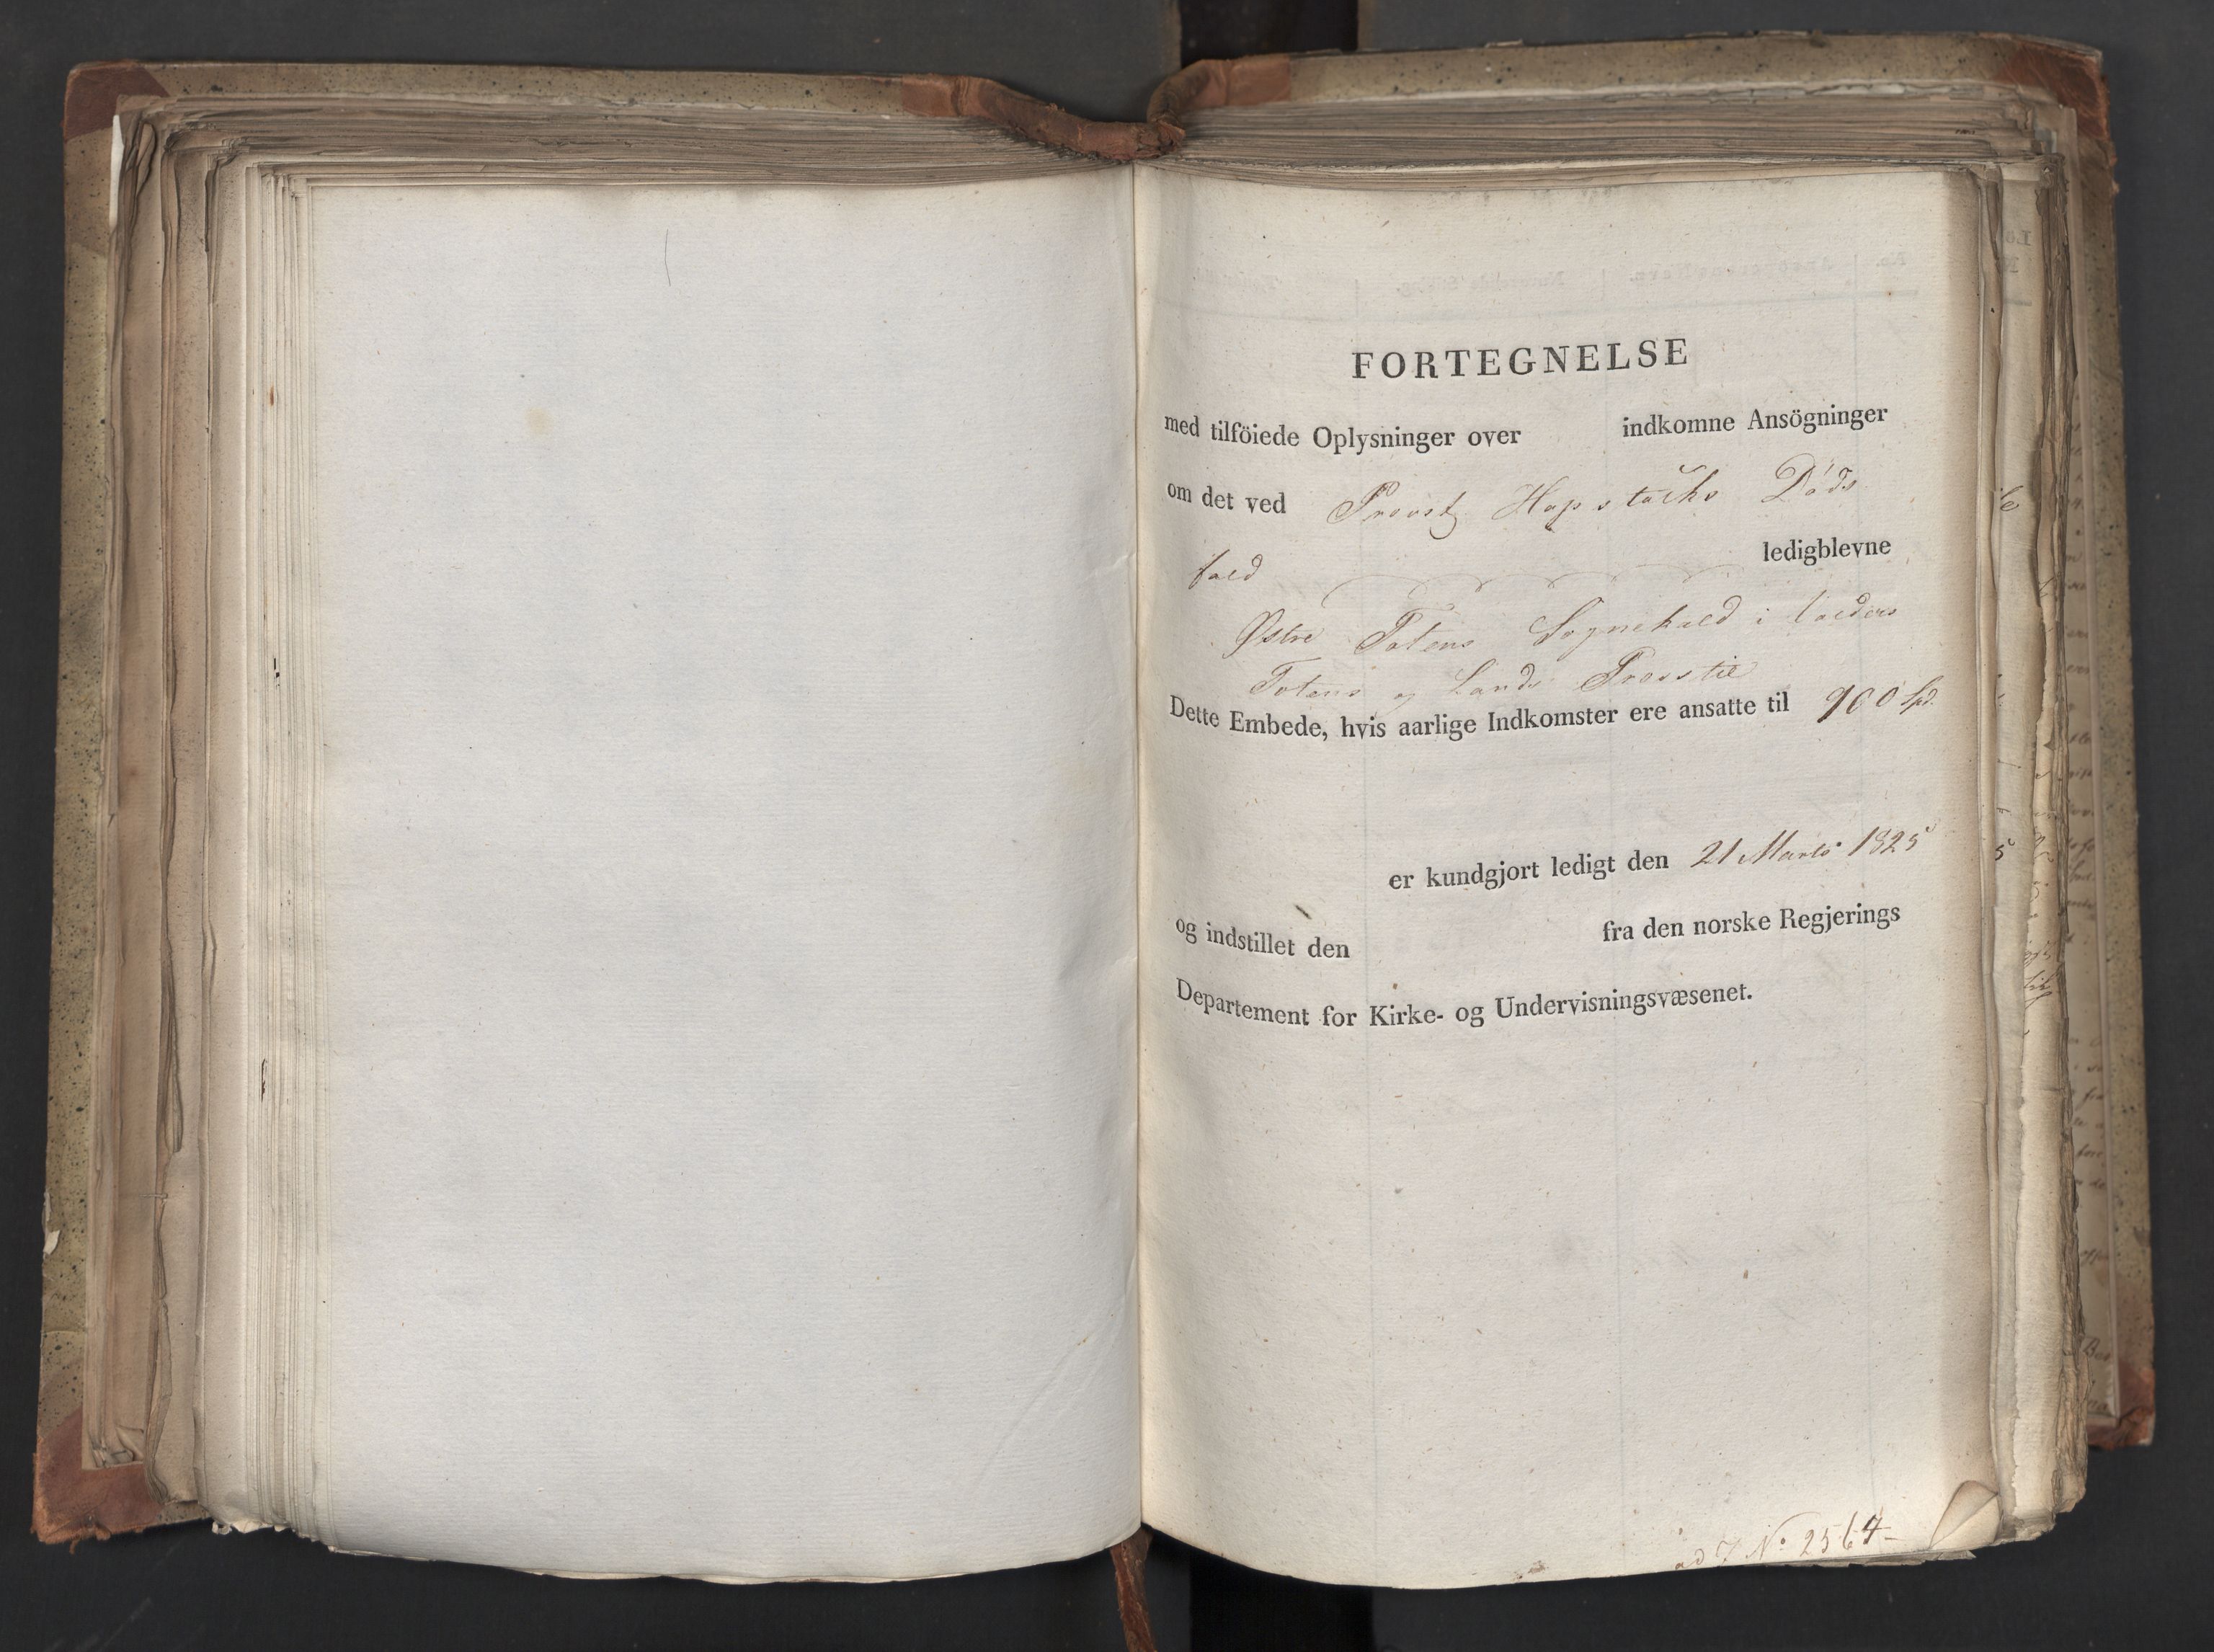 FORTEGNELSE
med tilföiede Oplysninger over indkomne Ansögninger
om det ved Provst Hapstachs Döds
fald ledigblevne
Østre Totens Sognekald i
Totens og Lands Provstie
Dette Embede, hvis aarlige Indkomster ere ansatte til 900 Spd.
er kundgjort ledigt den 21 Marts 1825
og indstillet den fra den norske Regjerings
Departement for Kirke- og Undervisningsvæsenet.
ad J No 2564